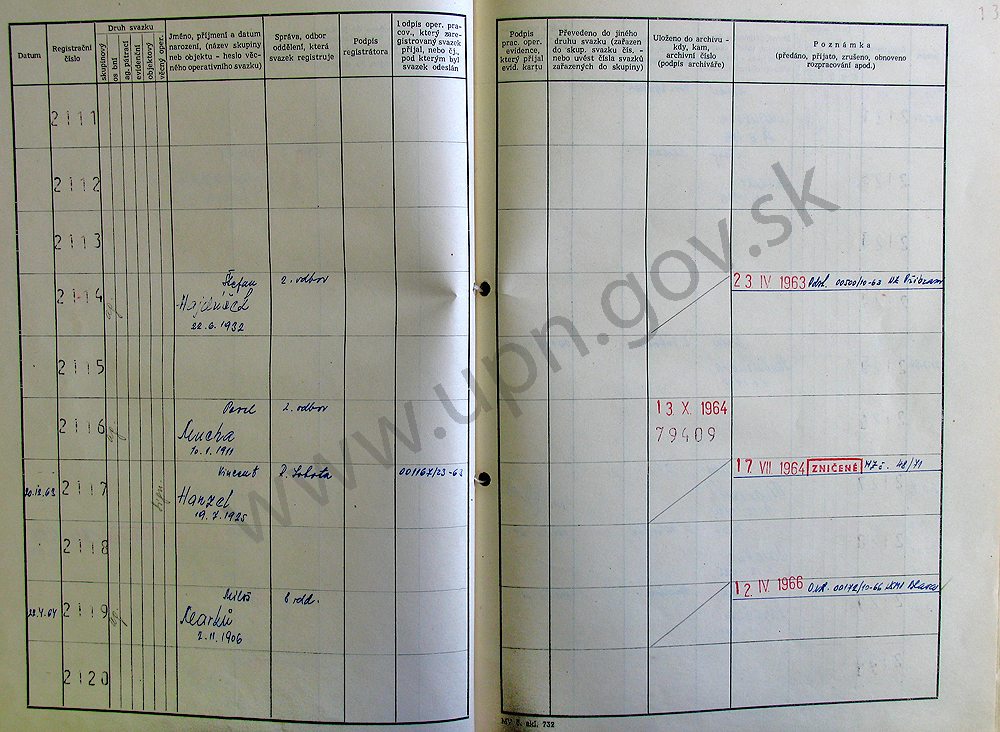 Datum
Registrační číslo
Druh svazku
skupinový
os bní
ag. pátrací
evidenční
objektový
věcný oper.
Jméno, příjmení a datum
narození, (název skupiny
neb objektu - heslo věc-
ného operativního svazku)
Správa, odbor
oddělení, která
svazek registruje
Podpis
registrátora
odpis oper. pra-
cov., který zare-
gistrovaný svazek
přijal, nebo čj.,
pod kterým byl
svazek odeslán
Podpis
prac. oper.
evidence,
který přijal
evid. kartu
Převedeno do jiného
druhu svazku (zařazen
do skup. svazku čís. -
nebo uvést čísla svazků
zařazených do skupiny)
Uloženo do archivu -
kdy, kam,
archivní číslo
(podpis archiváře)
Poznámka
(předáno, přijato, zrušeno, obnoveno
rozpracování apod.)
2111
2112
2113
2114 Štefan 2. odbor 23 IV 1963 00500/10-63 Příbram
22.6.1932
2115
2116 Pavel 2. odbor 13. X. 1964
Mucha 79409
10.1.1911
20.12.63 2117 Vincent R. Sobota 001167/23-63 17 VII 1964 ZNIČENÉ 48/71
Hanzel
19.7.1925
2118
28.4.64 2119 Miloš 8 odd. 12. IV. 1966 00172/10-66
Marků
2.11.1906
2120
MV č. skl. 732
www.upn.gov.sk